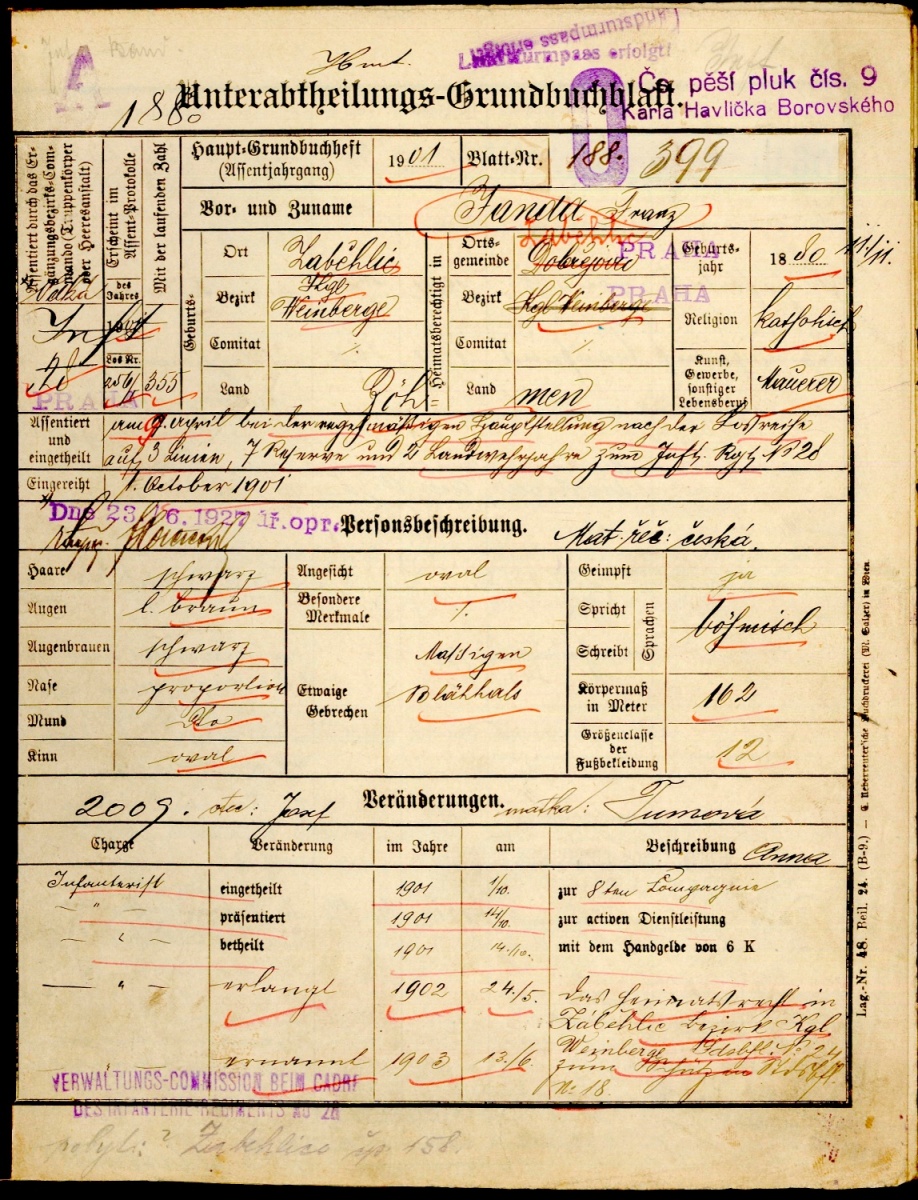 Landsturmpass erfolgt
Landsturmpass erfolgt
A
188
Unterabtheilungs-Grundbuchblatt.
Čs. pěší pluk čís. 9
Karla Havlíčka Borovského
Assentiert durch das Ergänzungsbezirks-Commando (Truppenkörper oder Heeresanstalt)
Erscheint im Assent-Protokolle
Mit der laufenden Zahl
des Jahres
Los Nr.
256/
355
PRAHA
Haupt-Grundbuchheft
(Assentjahrgang)
1901
Blatt-Nr.
188. 399
Vor- und Zuname
Fanda Franz
Geburts-
Ort
Zaběhlic
Bezirk
Kgl
Weinberge
Comitat
Land
Böh=
Heimatsberechtigt in
Ortsgemeinde
Zaběhlic
PRAHA
Bezirk
Kgl Weinberge
PRAHA
Comitat
Land
men
Geburtsjahr
1880 11/11.
Religion
katholisch
Kunst, Gewerbe, sonstiger Lebensberuf
Maurer
Assentiert
und
eingetheilt
am 9. April bei der regelmäßigen Hauptstellung nach der Losreihe
auf 3 Linien, 7 Reserve und 2 Landwehrjahre zum Inft. Rgt. No 28
Eingereiht
1. October 1901
Dne 23./6.1927 iř. opr.
Personsbeschreibung.
Mat. řeč: česká.
Haare
schwarz
Angesicht
oval
Geimpft
ja
Augen
l. braun
Besondere
Merkmale
Spricht
Schreibt
Sprachen
böhmisch
Augenbrauen
schwarz
Etwaige
Gebrechen
Mässigen
Blähhals
Nase
proportion
Körpermaß
in Meter
162
Mund
dto
Größenclasse
der
Fußbekleidung
12
Kinn
oval
2009. otec: Josef
Veränderungen.
matka: Tumová
Anna
Charge
Veränderung
im Jahre
am
Beschreibung
Infanterist
eingetheilt
1901
1/10.
zur 8ten Compagnie
- " -
präsentiert
1901
14/10.
zur activen Dienstleistung
- " -
betheilt
1901
14./10.
mit dem Handgelde von 6 K
- " -
erlangt
1902
24./5.
das Heimatsrecht in
Záběhlic Bezirk Kgl
Weinberge
ernannt
1903
13./6
zum
No 18.
VERWALTUNGS-COMMISSION BEIM CADRE
DES INFANTERIE-REGIMENTS NO 28
pobyt: ? Zaběhlice čp. 158.
Lag.-Nr. 48. Beil. 24. (B-9.) — C. Ueberreuter'sche Buchdruckerei (M. Salzer) in Wien.